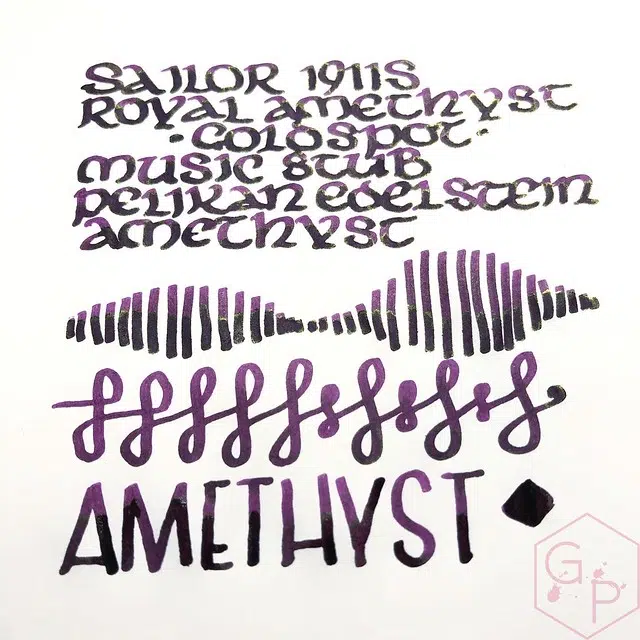 SAILOR 1911S
ROYAL AMETHYST
·GOLDSPOT·
MUSIC STUB
PELIKAN EDELSTEIN
AMETHYST
AMETHYST
GP